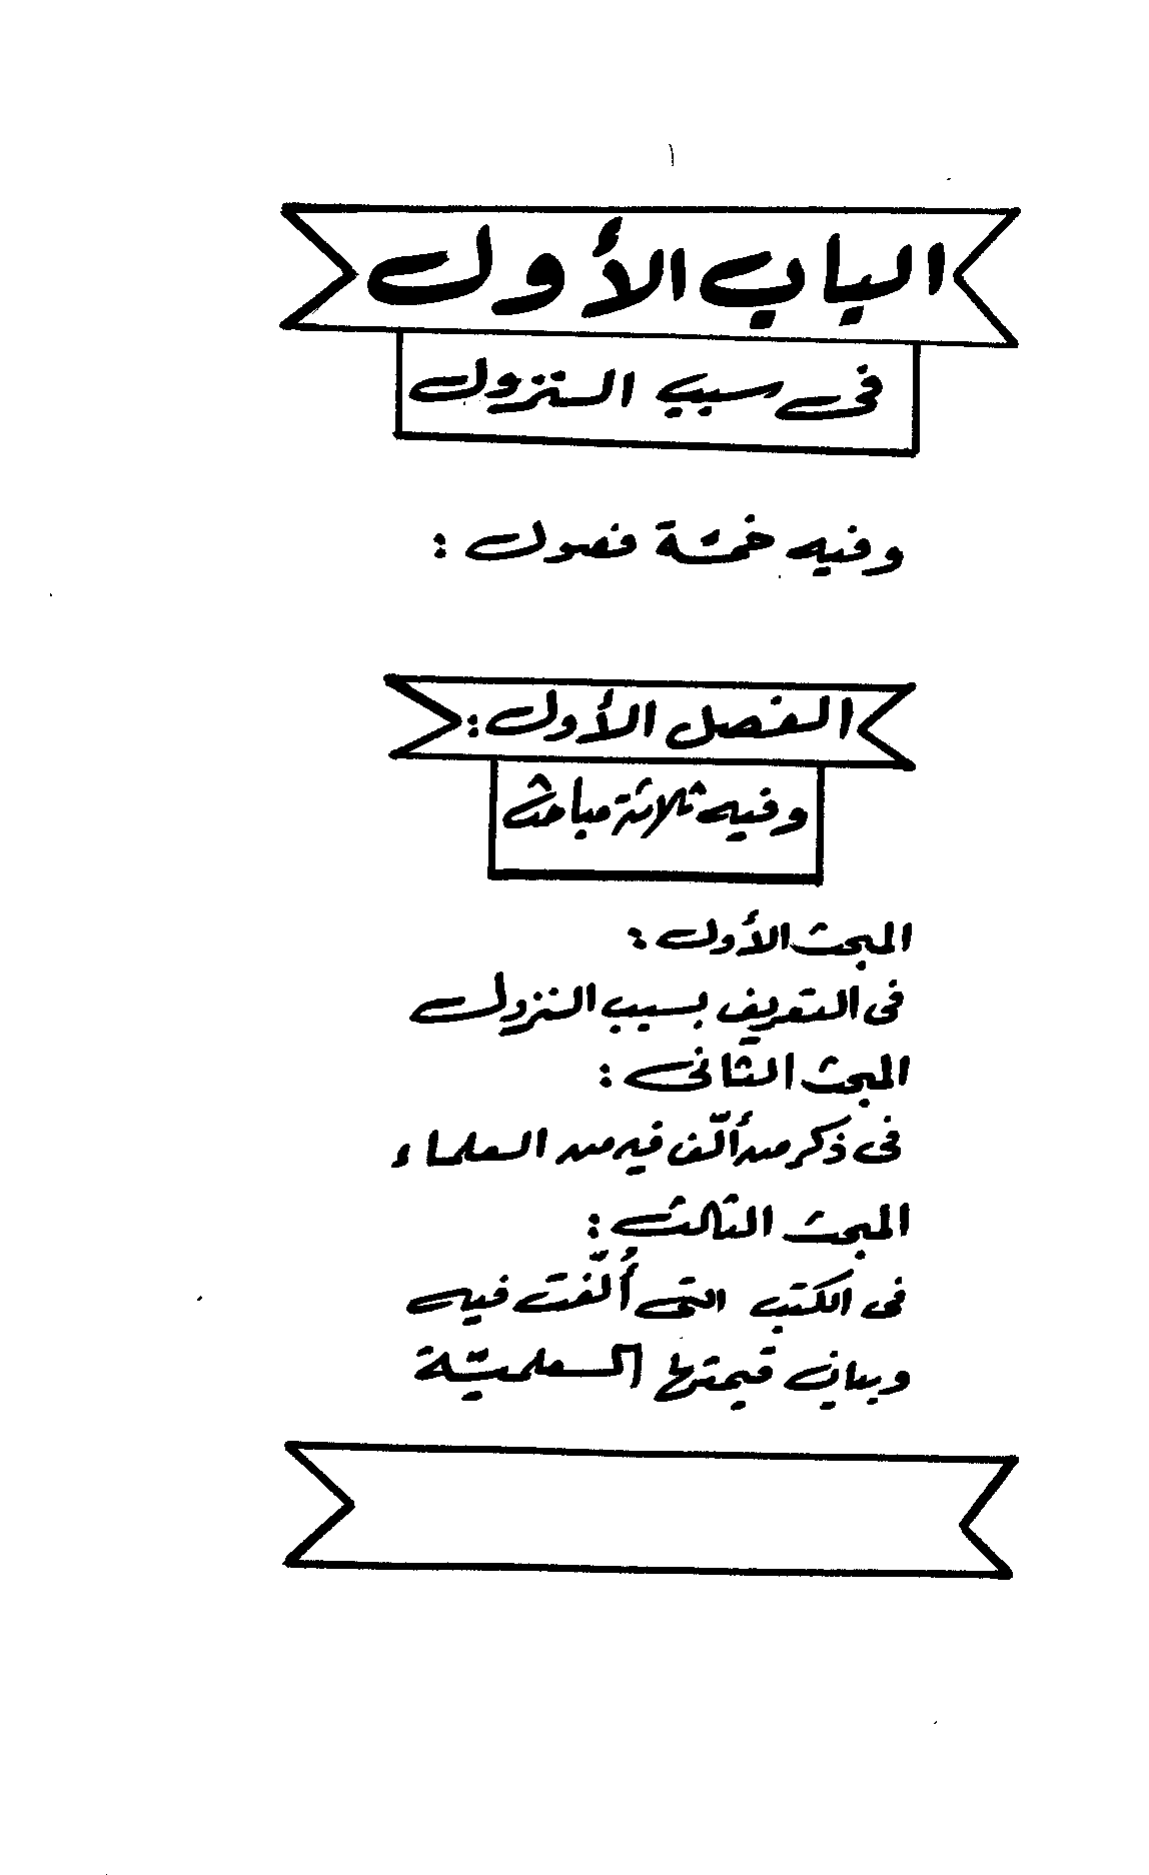 ١
الباب الأول
فى سبب النزول
وفيه خمسة فصول :
الفصل الأول :
وفيه ثلاثة مباحث
المبحث الأول :
فى التعريف بسبب النزول
المبحث الثانى :
فى ذكر من ألّف فيه من العلماء
المبحث الثالث :
فى الكتب التى أُلّفت فيه
وبيان قيمتها العلميّة